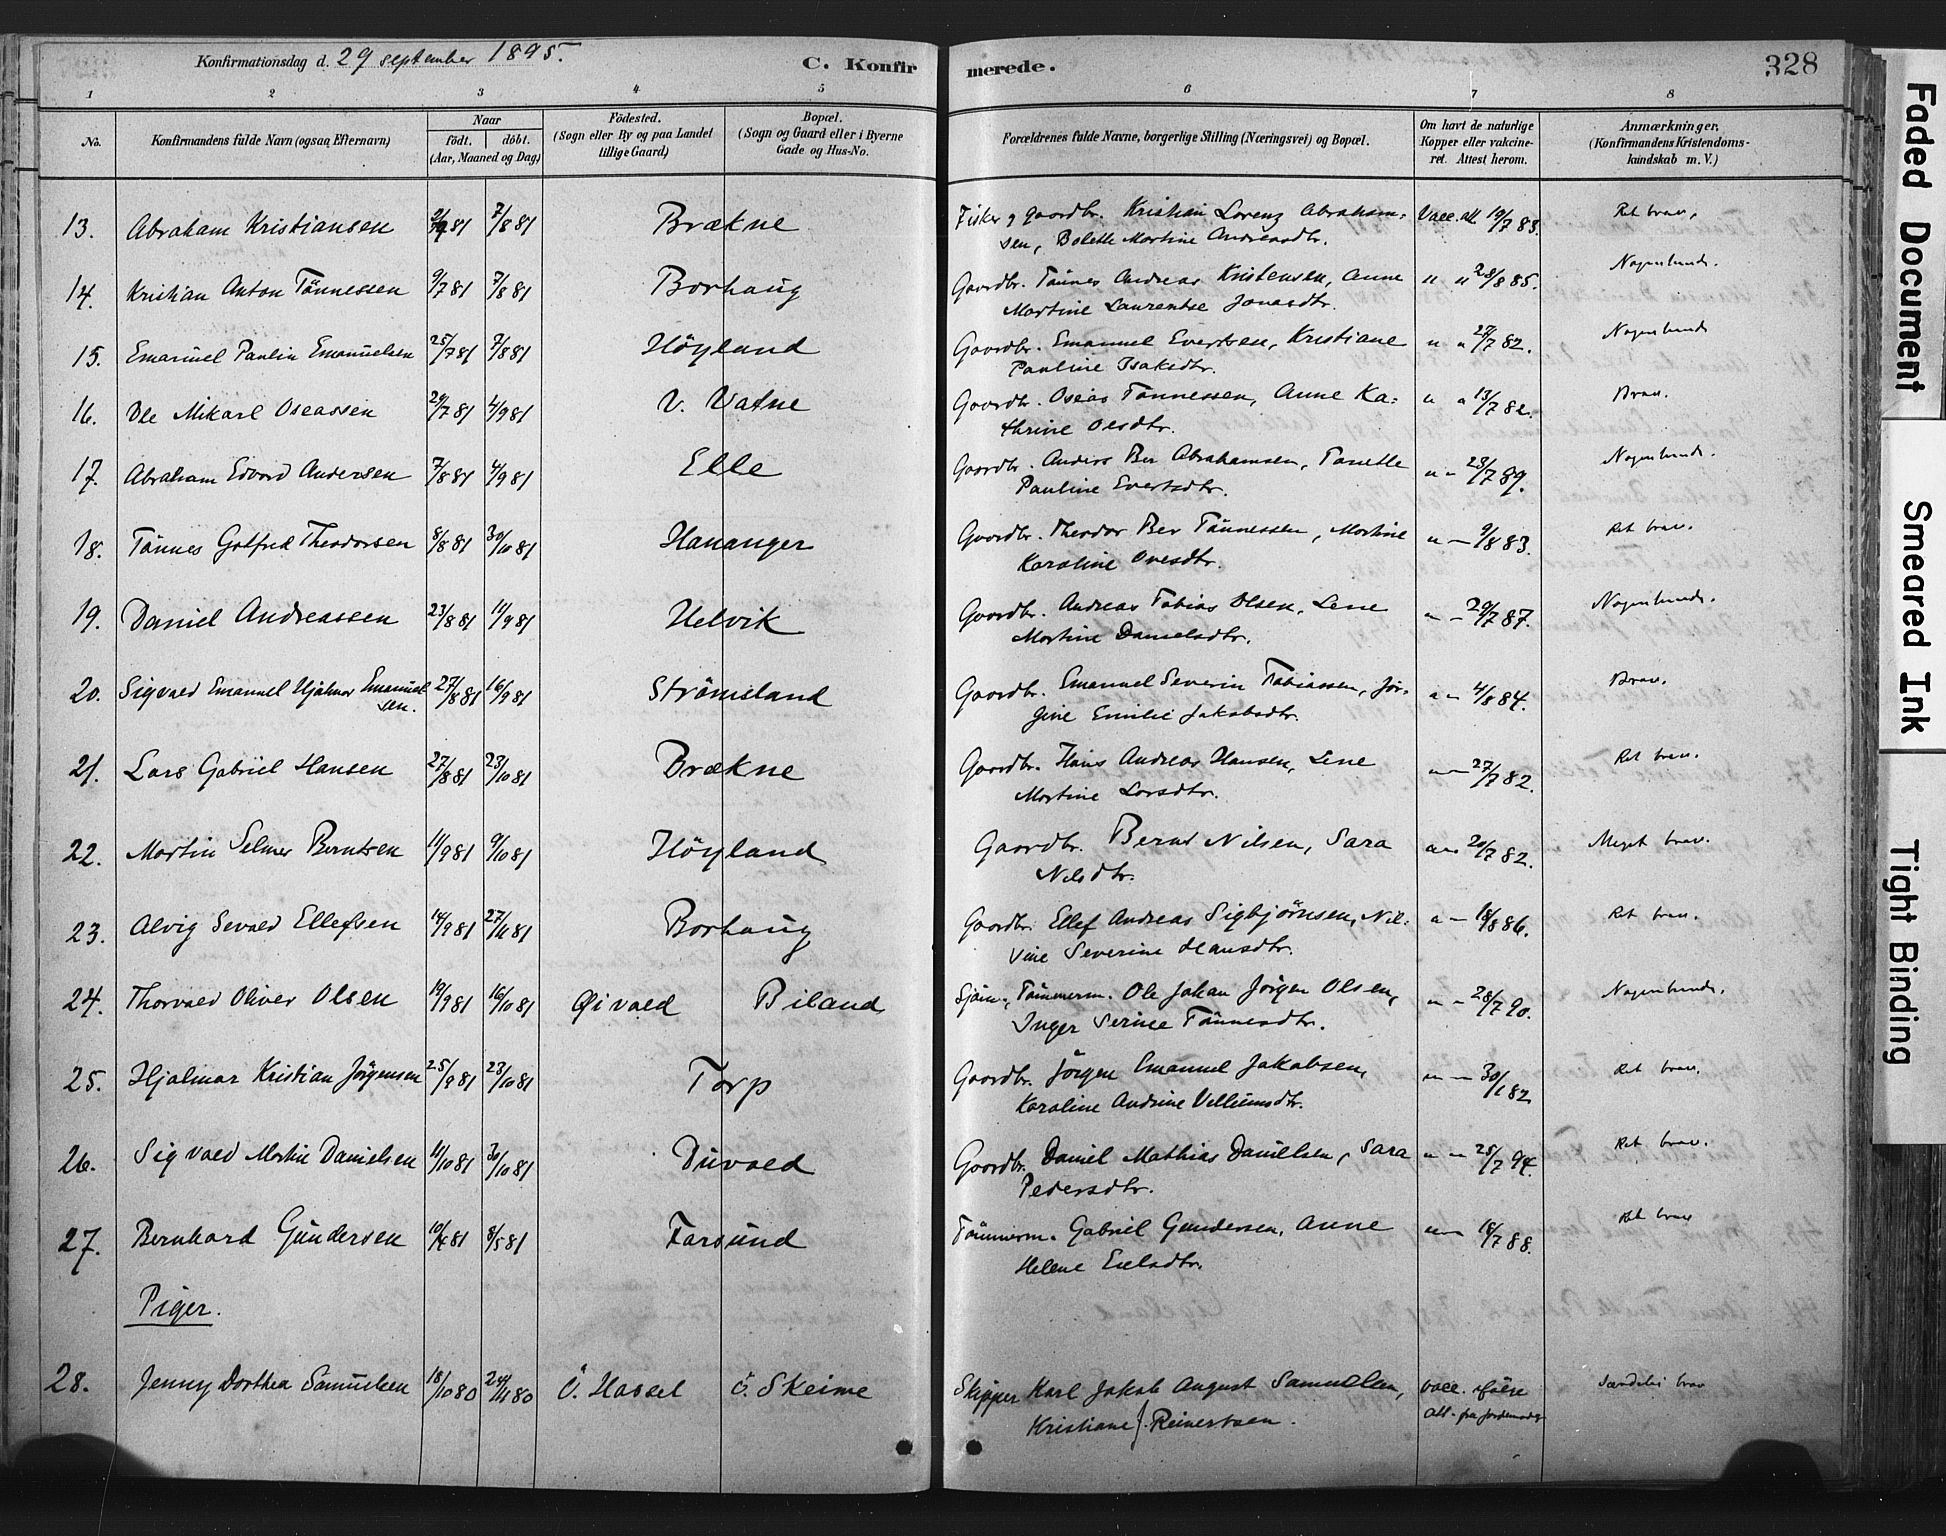 Konfirmationsdag d. 29 september 1895.
C. Konfirmerede.
328
1 2 3 4 5 6 7 8
No.
Konfirmandens fulde Navn (ogsaa Efternavn)
Naar
födt. döbt.
(Aar, Maaned og Dag)
Födested.
(Sogn eller By og paa Landet
tillige Gaard)
Bopæl.
(Sogn og Gaard eller i Byerne
Gade og Hus-No.
Forældrenes fulde Navne, borgerlige Stilling (Næringsvei) og Bopæl.
Om havt de naturlige
Kopper eller vakcine-
ret. Attest herom.
Anmærkninger.
(Konfirmandens Kristendoms-
kundskab m. V.)
13. Abraham Kristiansen 81 7/8 81 Brækne Fisker og Gaardbr. Kristian Lorenz Abraham- Vacc. att 19/7 83. Ret brav.
sen, Bolette Martine Andreasdtr.
14. Kristian Anton Tönnessen 9/7 81 7/8 81 Borhaug Gaardbr. Tönnes Andreas Kristensen, Anne " " 28/8 85. Nogenlunde.
Martine Laurentse Jonasdtr.
15. Emanuel Paulin Emanuelsen 25/7 81 7/8 81 Höyland Gaardbr. Emanuel Evertsen, Kristiane " " 27/7 82. Nogenlunde
Pauline Isaksdtr.
16. Ole Mikael Oseassen 29/7 81 4/9 81 V. Vatne Gaardbr. Oseas Tönnessen, Anne Ka- " " 13/7 82. Brav.
thrine Olsdtr.
17. Abraham Edvard Andersen 7/8 81 4/9 81 Elle Gaardbr. Anders Ber Abrahamsen, Tonette " " 23/7 89. Nogenlunde.
Pauline Evertsdtr.
18. Tönnes Gotfred Theodorsen 8/8 81 30/10 81 Hananger Gaardbr. Theodor Ber Tönnessen, Martine " " 9/8 83. Ret brav.
Karoline Ovesdtr.
19. Daniel Andreassen 23/8 81 11/9 81 Helvik Gaardbr. Andreas Tobias Olsen, Lene " " 20/7 87. Nogenlunde.
Martine Danielsdtr.
20. Sigvald Emanuel Hjalmar Emanuel- 27/8 81 16/9 81 Strömsland Gaardbr. Emanuel Severin Tobiassen, Jör- " " 4/8 84. Brav.
sen. gine Emilie Jakobsdtr.
21. Lars Gabriel Hansen 27/8 81 23/10 81 Brækne Gaardbr. Hans Andreas Hansen, Lene " " 27/7 82. Ret brav.
Martine Larsdtr.
22. Martin Selmer Berntsen 11/9 81 9/10 81 Höyland Gaardbr. Bernt Nilsen, Sara " " 20/7 82. Meget brav.
Nilsdtr.
23. Alvig Sevald Ellefsen 14/9 81 27/11 81 Borhaug Gaardbr. Ellef Andreas Sigbjörnsen, Nil- " " 18/8 86. Ret brav.
vine Severine Hansdtr.
24. Thorvald Oliver Olsen 19/9 81 16/10 81 Öivold Biland Sjöm., Tömmerm. Ole Johan Jörgen Olsen, " " 28/7 90. Nogenlunde.
Inger Serine Tönnesdtr.
25. Hjalmar Kristian Jörgensen 25/9 81 23/10 81 Torp Gaardbr. Jörgen Emanuel Jakobsen, " " 30/1 82 Ret brav.
Karoline Andrine Villiumsdtr.
26. Sigvald Martin Danielsen 11/10 81 30/10 81 Duvold Gaardbr. Daniel Mathias Danielsen, Sara " " 25/7 94. Ret brav.
Pedersdtr.
27. Bernhard Gundersen 10/4 81 8/5 81 Farsund Tömmerm. Gabriel Gundersen, Anne " " 18/7 88. Ret brav
Helene Eielsdtr.
Piger.
28. Jenny Dorthea Samuelsen 18/10 80 24/11 80 Ö. Hassel Ö. Skeime Skipper Karl Jakob August Samuelsen, Vacc. ifölge Særdeles brav
Kristiane f. Reinertsen. att. fra Jordemoder
Faded Document
Smeared Ink
Tight Binding